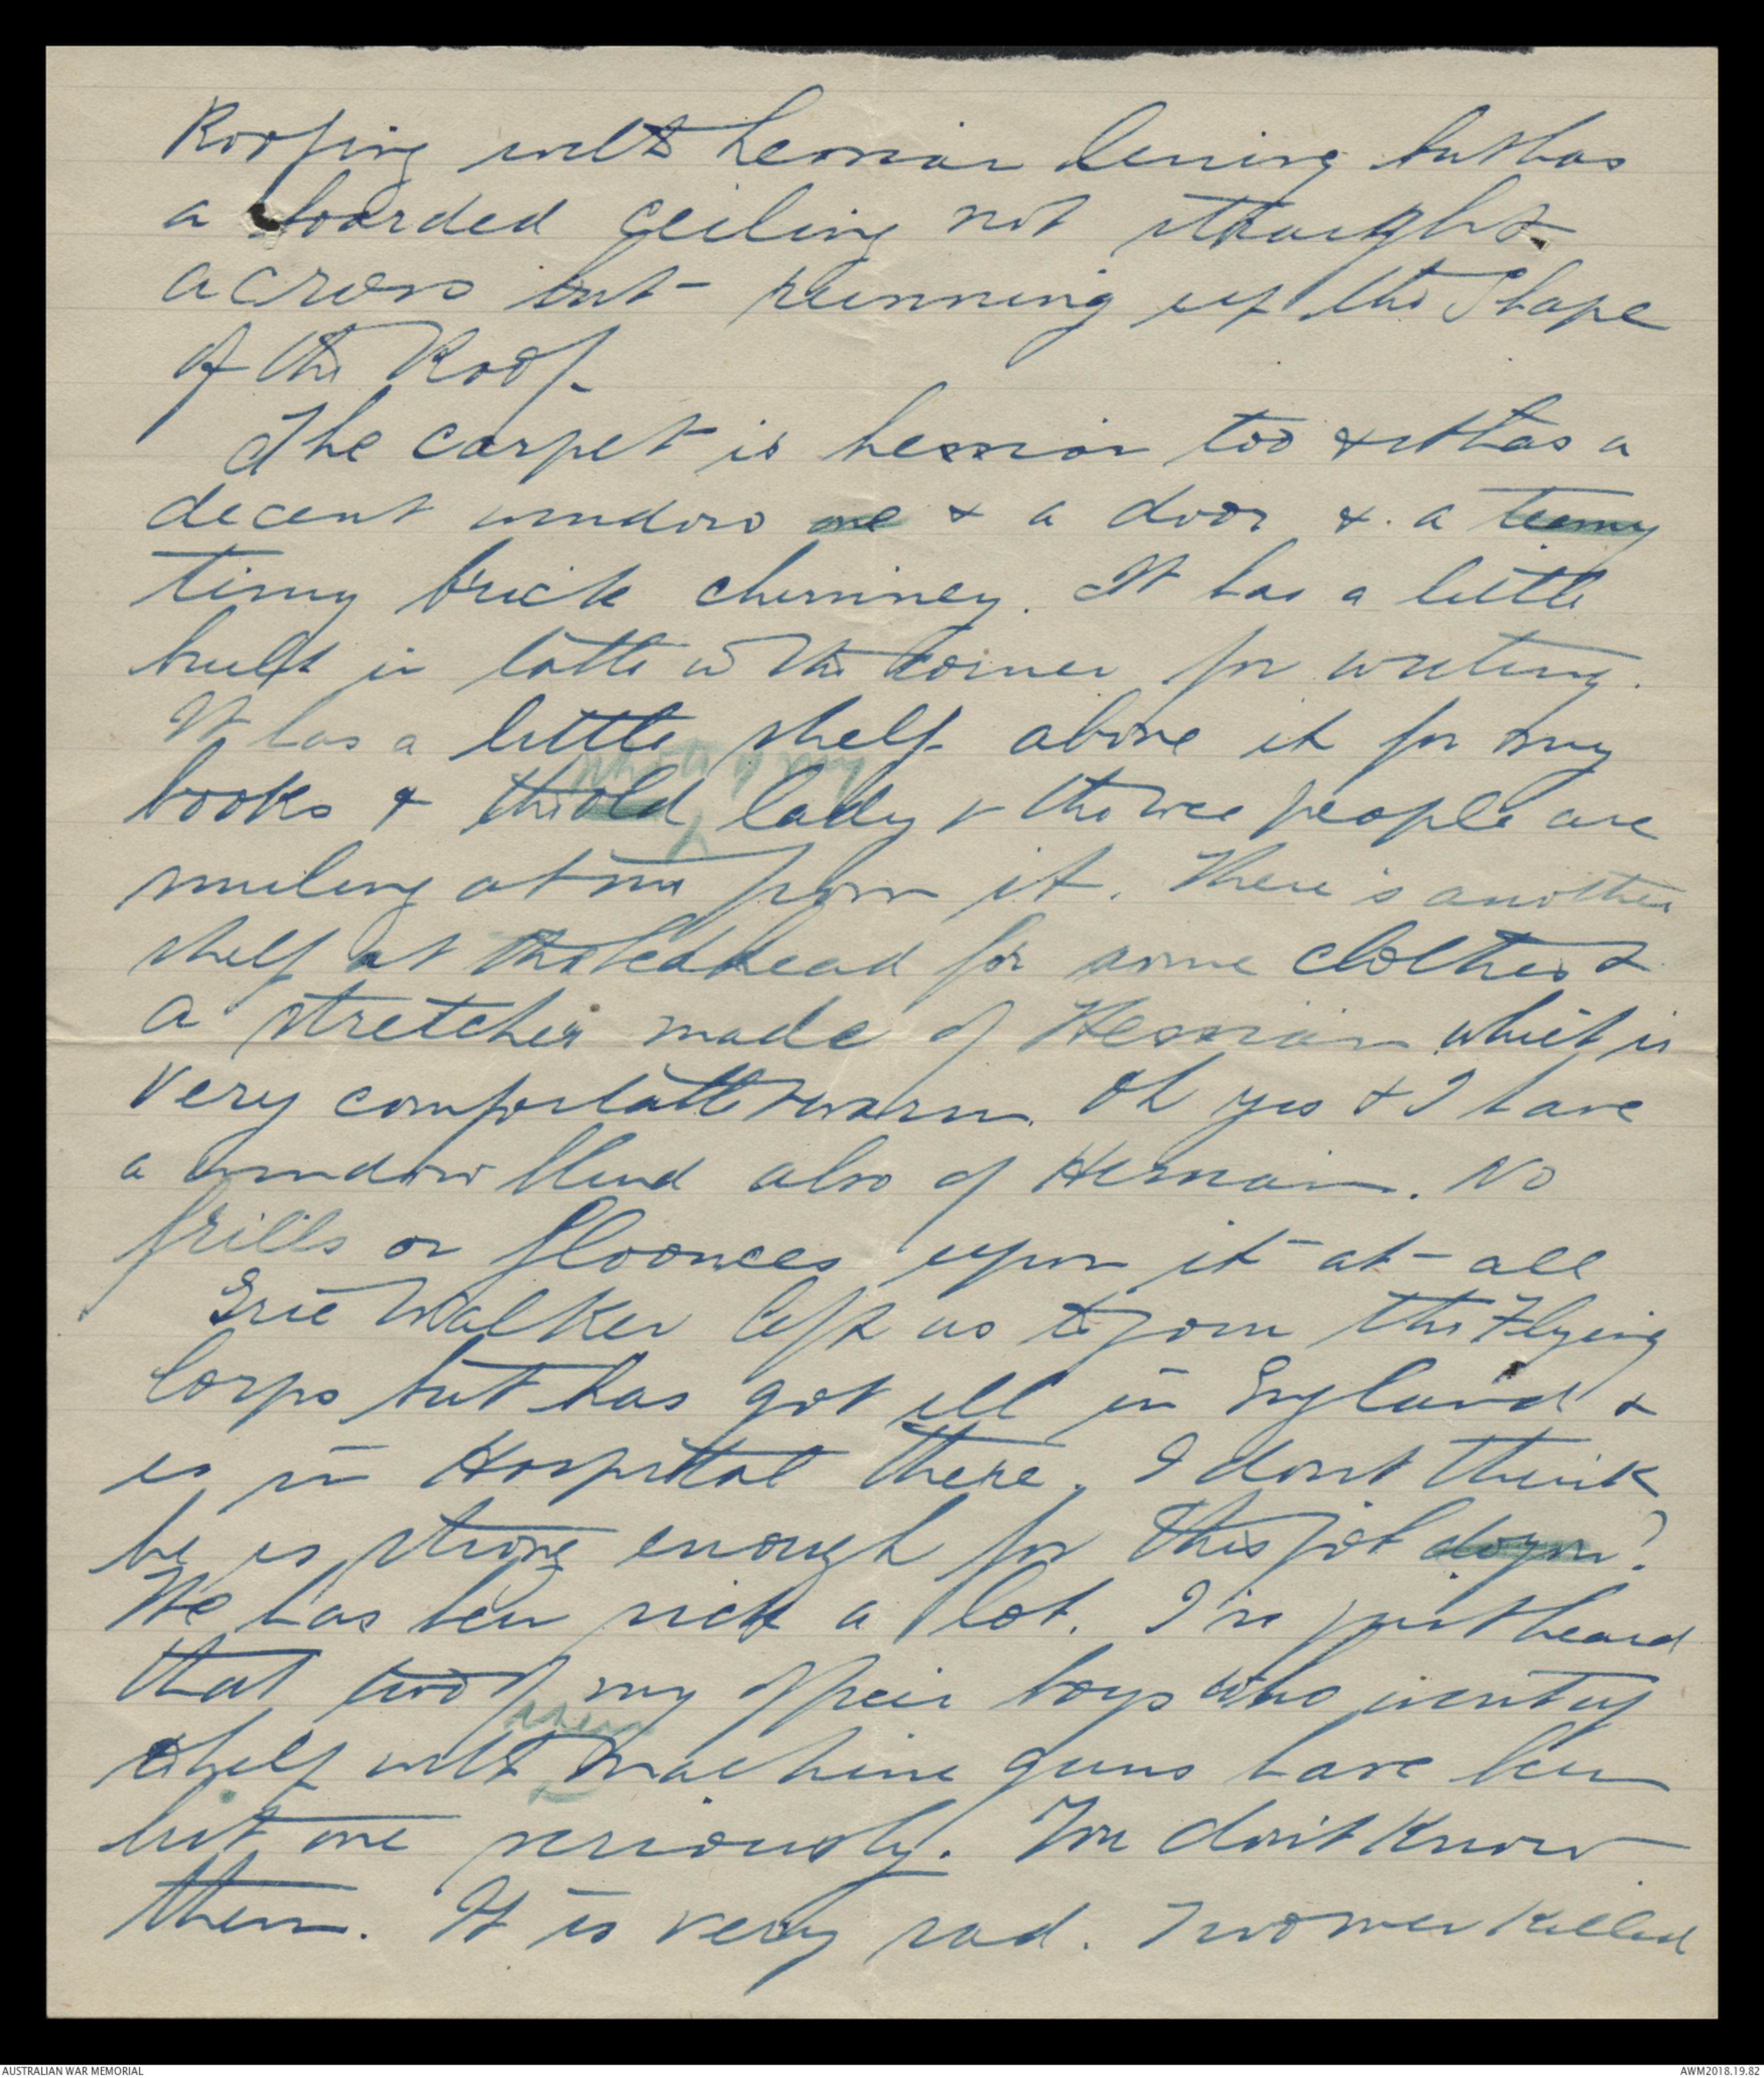 Roofing with hessian lining but has
a boarded ceiling not straight
across but - running up the Shape
of the Roof.
The carpet is hessian too & it has a
decent window one & a door & a teeny
tiny brick chimney. It has a little
built in table in the corner for writing.
It has a little shelf above it for my
books & the old lady & the wee people are
smiling at me from it. There's another
shelf at the bedhead for some clothes &
a stretcher made of Hessian which is
very comfortable & warm. Oh yes & I have
a window blind also of Hessian. No
frills or floonces upon it at all
Eric Walker left us to join the Flying
Corps but has got ill in England &
is in Hospital there. I dont think
he is strong enough for this job
He has been sick a lot. I've just heard
that two of my boys who went up
with machine guns have been
hit one seriously. You don't know
them. It is very sad. Two men killed
AUSTRALIAN WAR MEMORIAL
AWM2018.19.82